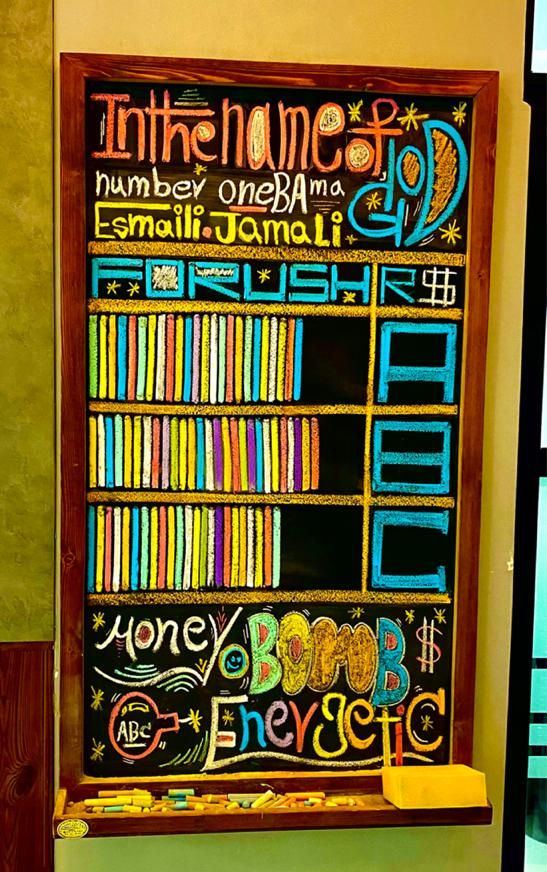 In the name of GOD
number one BAma
Esmaili. Jamali
FORUSH R$
A
B
C
Money BOMB $
ABC Energetic